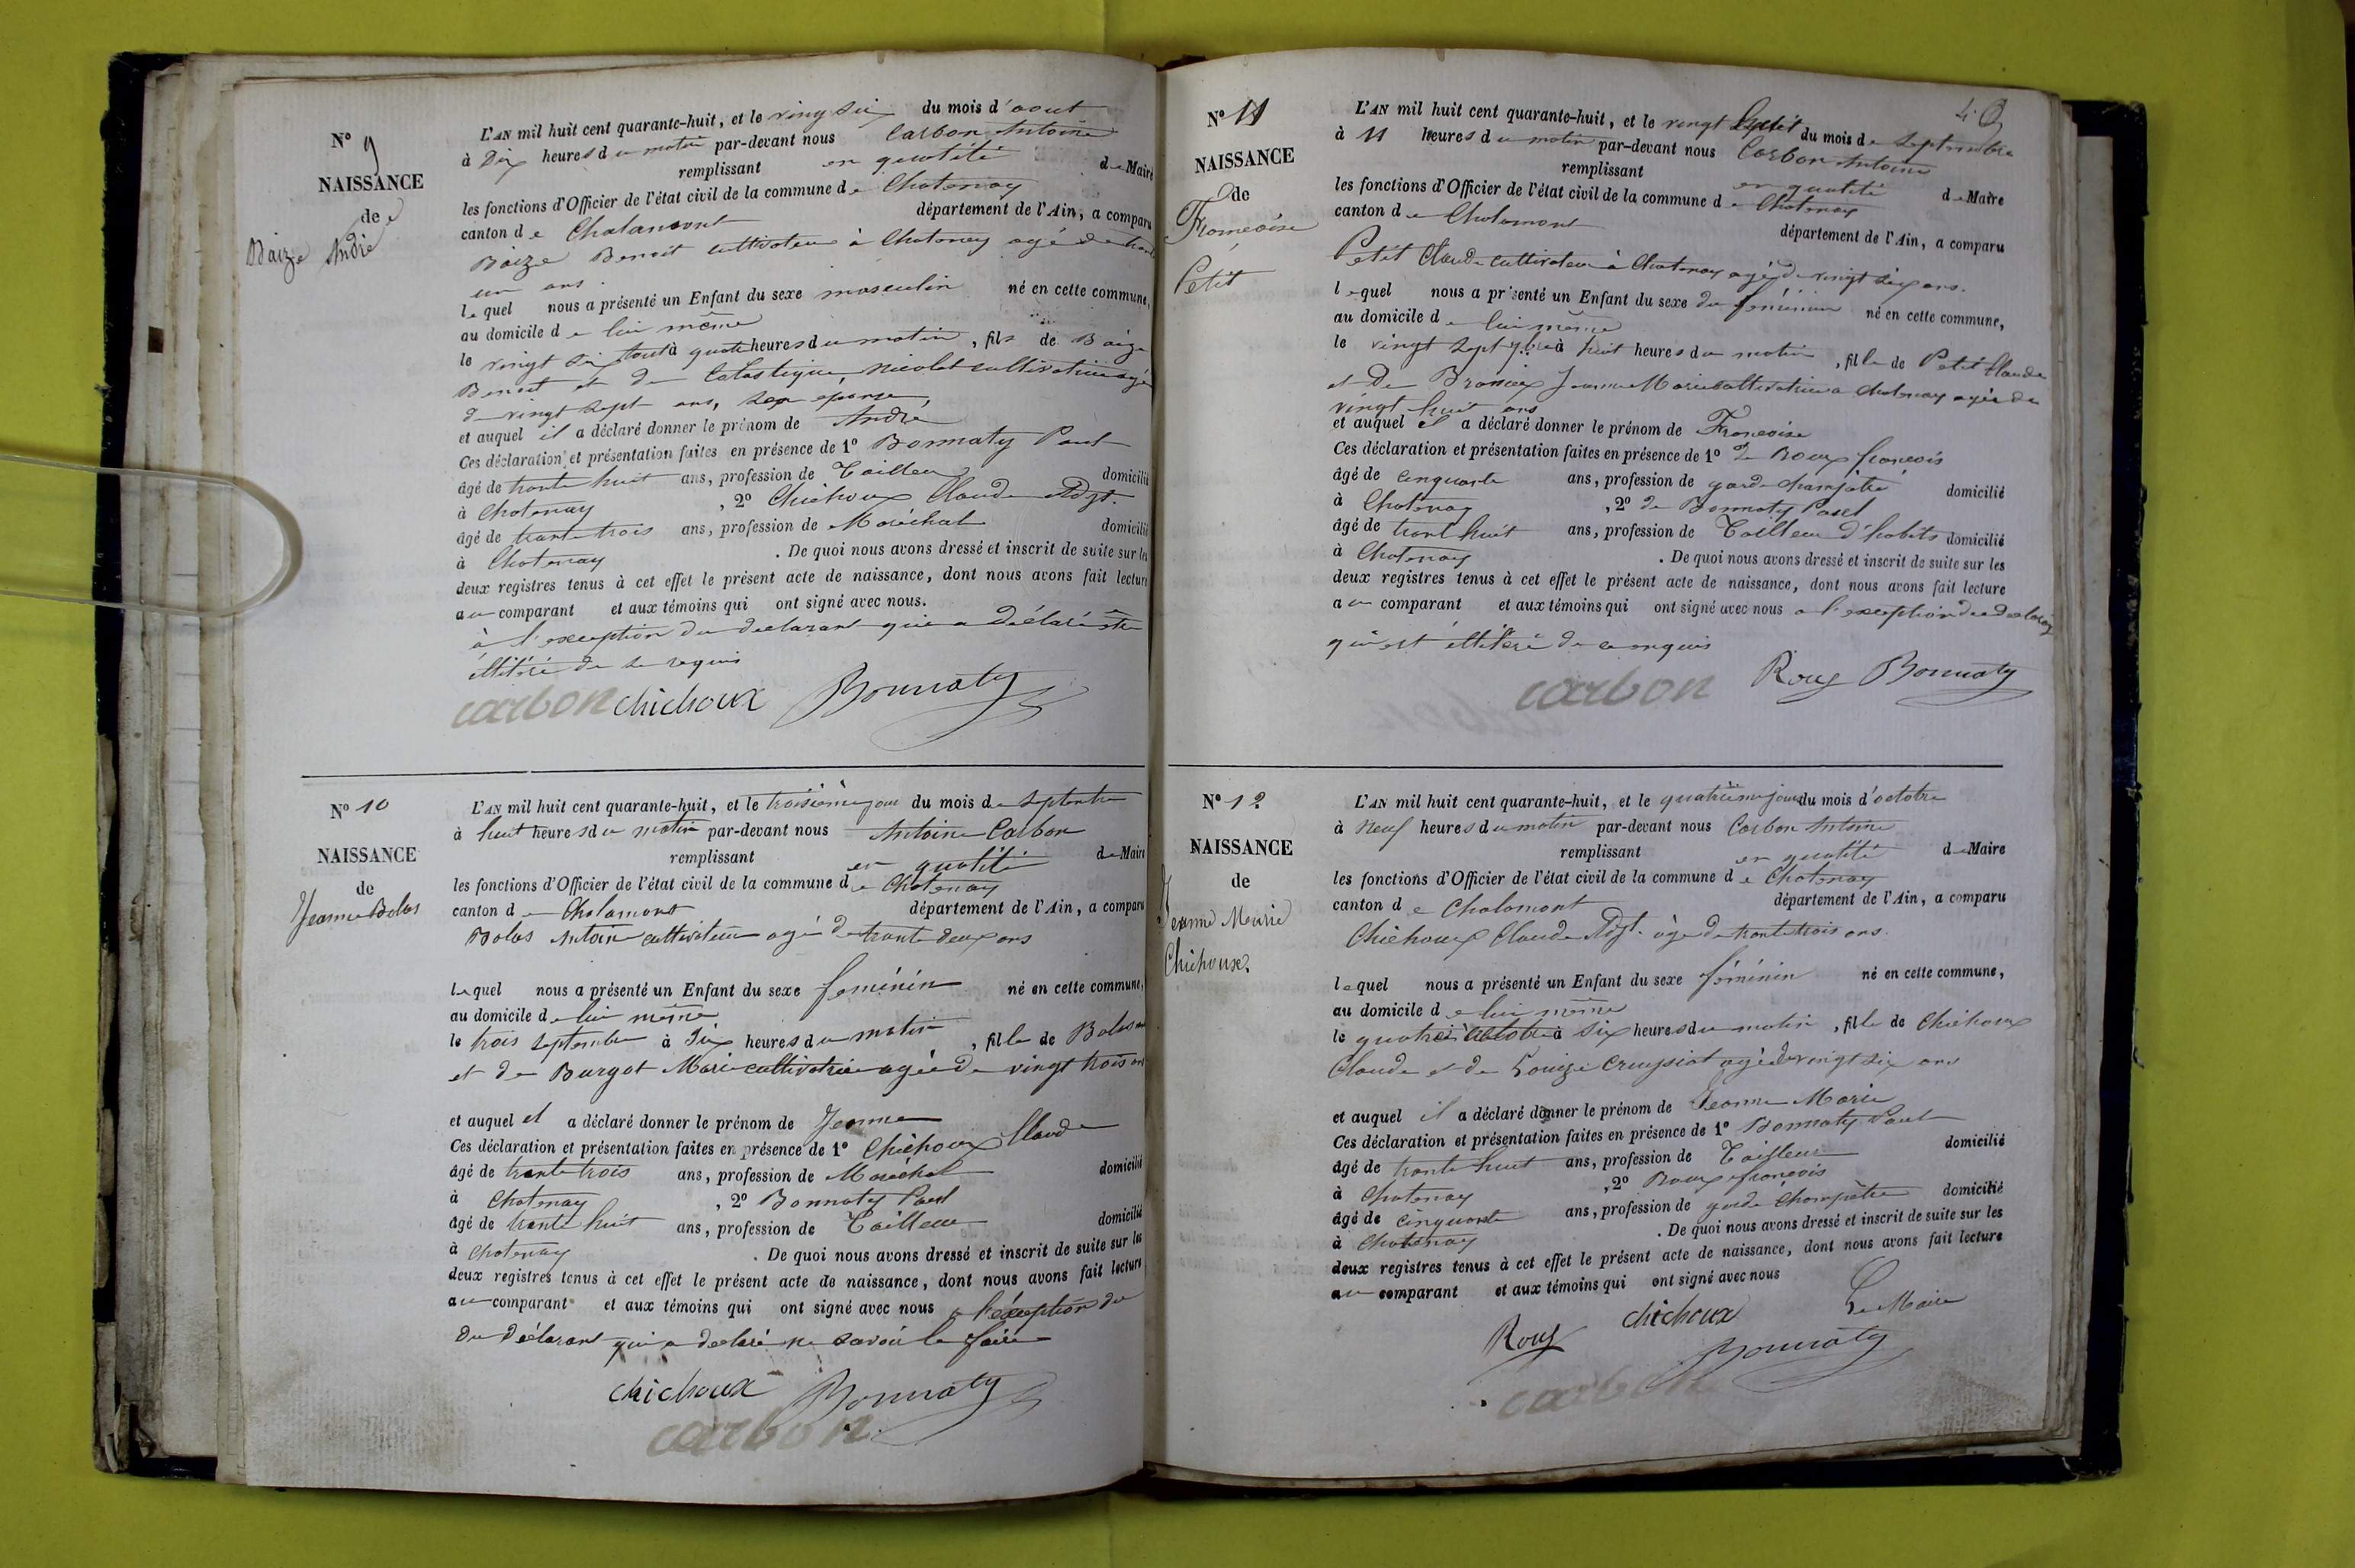 N° 9
NAISSANCE
de
Baize André
L'AN mil huit cent quarante-huit, et le vingt six du mois d'aout
à Dix heures du matin par-devant nous Carbon Antoine
remplissant en quatité de Maire
les fonctions d'Officier de l'état civil de la commune de Chatenay
canton de Chalamont département de l'Ain, a comparu
Baize Benoit cultivateur à Chatenay agé de trante
un ans.
lequel nous a présenté un Enfant du sexe masculin né en cette commune,
au domicile de lui même
le vingt six aout à quatre heures du matin, fils de Baize
Benoit et de Catastique, Nicolet cultivatrice agée
de vingt sept ans, son eponse,
et auquel il a déclaré donner le prénom de André
Ces déclaration et présentation faites en présence de 1° Bonnaty Paul
âgé de trante huit ans, profession de Tailleur domicilié
à Chatenay, 2° Chichoux Claude Adjt.
âgé de trante trois ans, profession de Maréchal domicilié
à Chatenay. De quoi nous avons dressé et inscrit de suite sur les
deux registres tenus à cet effet le présent acte de naissance, dont nous avons fait lecture
au comparant et aux témoins qui ont signé avec nous.
à l'exception du declarant qui a déclaré être
illitéré de se requis
carbon chichoux Bonnaty
N° 10
NAISSANCE
de
Jeanne Bolas
L'AN mil huit cent quarante-huit, et le troisième jour du mois de Septembre
à huit heures du matin par-devant nous Antoine Carbon
remplissant en quatité de Maire
les fonctions d'Officier de l'état civil de la commune de Chatenay
canton de Chalamont département de l'Ain, a comparu
Bolas Antoine cultivateur agé de trante deux ans
lequel nous a présenté un Enfant du sexe feminin né en cette commune,
au domicile de lui même
le trois Septembre à Six heures du matin, fille de Bolas
et de Burgat Marie cultivatrice agée de vingt trois ans
et auquel il a déclaré donner le prénom de Jeanne
Ces déclaration et présentation faites en présence de 1° Chichoux Claude
âgé de trante trois ans, profession de Maréchal domicilié
à Chatenay, 2° Bonnaty Paul
âgé de trante huit ans, profession de Tailleur domicilié
à Chatenay. De quoi nous avons dressé et inscrit de suite sur les
deux registres tenus à cet effet le présent acte de naissance, dont nous avons fait lecture
au comparant et aux témoins qui ont signé avec nous à l'exception du
du déclarant qui a declaré ne savoir le faire
chichoux Bonnaty
carbon
N° 11
NAISSANCE
de
Francoise
Petit
L'AN mil huit cent quarante-huit, et le vingt huit du mois de Septembre
à 11 heures du matin par-devant nous Carbon Antoine
remplissant en quatité de Maire
les fonctions d'Officier de l'état civil de la commune de Chatenay
canton de Chalamont département de l'Ain, a comparu
Petit Claude cultivateur à Chatenay agé de vingt six ans.
lequel nous a présenté un Enfant du sexe du féminin né en cette commune,
au domicile de lui même
le vingt sept 7bre à huit heures du matin, fille de Petit Claude
et de Jeanne Marie cultivatrice a Chatenay agée de
vingt huit ans
et auquel il a déclaré donner le prénom de Francoise
Ces déclaration et présentation faites en présence de 1° de Roux francois
âgé de cinquante ans, profession de garde champêtre domicilié
à Chatenay, 2° de Bonnaty Paul
âgé de trant huit ans, profession de Tailleur d'habits domicilié
à Chatenay. De quoi nous avons dressé et inscrit de suite sur les
deux registres tenus à cet effet le présent acte de naissance, dont nous avons fait lecture
au comparant et aux témoins qui ont signé avec nous a l'exception du
qui est illitéré de ce requis
carbon Roux Bonnaty
N° 12
NAISSANCE
de
Jeanne Marie
Chichoux.
L'AN mil huit cent quarante-huit, et le quatrième jour du mois d'octobre
à Neuf heures du matin par-devant nous Carbon Antoine
remplissant en quatité de Maire
les fonctions d'Officier de l'état civil de la commune de Chatenay
canton de Chalamont département de l'Ain, a comparu
Chichoux Claude Adjt. âgé de trante trois ans.
lequel nous a présenté un Enfant du sexe féminin né en cette commune,
au domicile de lui même
le octobre à six heures du matin, fille de Chichoux
Claude et de Louize Cruysiat agée de vingt six ans
et auquel il a déclaré donner le prénom de Jeanne Marie
Ces déclaration et présentation faites en présence de 1° Bonnaty Paul
âgé de trante huit ans, profession de Tailleur domicilié
à Chatenay, 2° Roux francois
âgé de cinquante ans, profession de garde Champêtre domicilié
à Chatenay. De quoi nous avons dressé et inscrit de suite sur les
deux registres tenus à cet effet le présent acte de naissance, dont nous avons fait lecture
au comparant et aux témoins qui ont signé avec nous
Roux chichoux Le Maire
Bonnaty
carbon